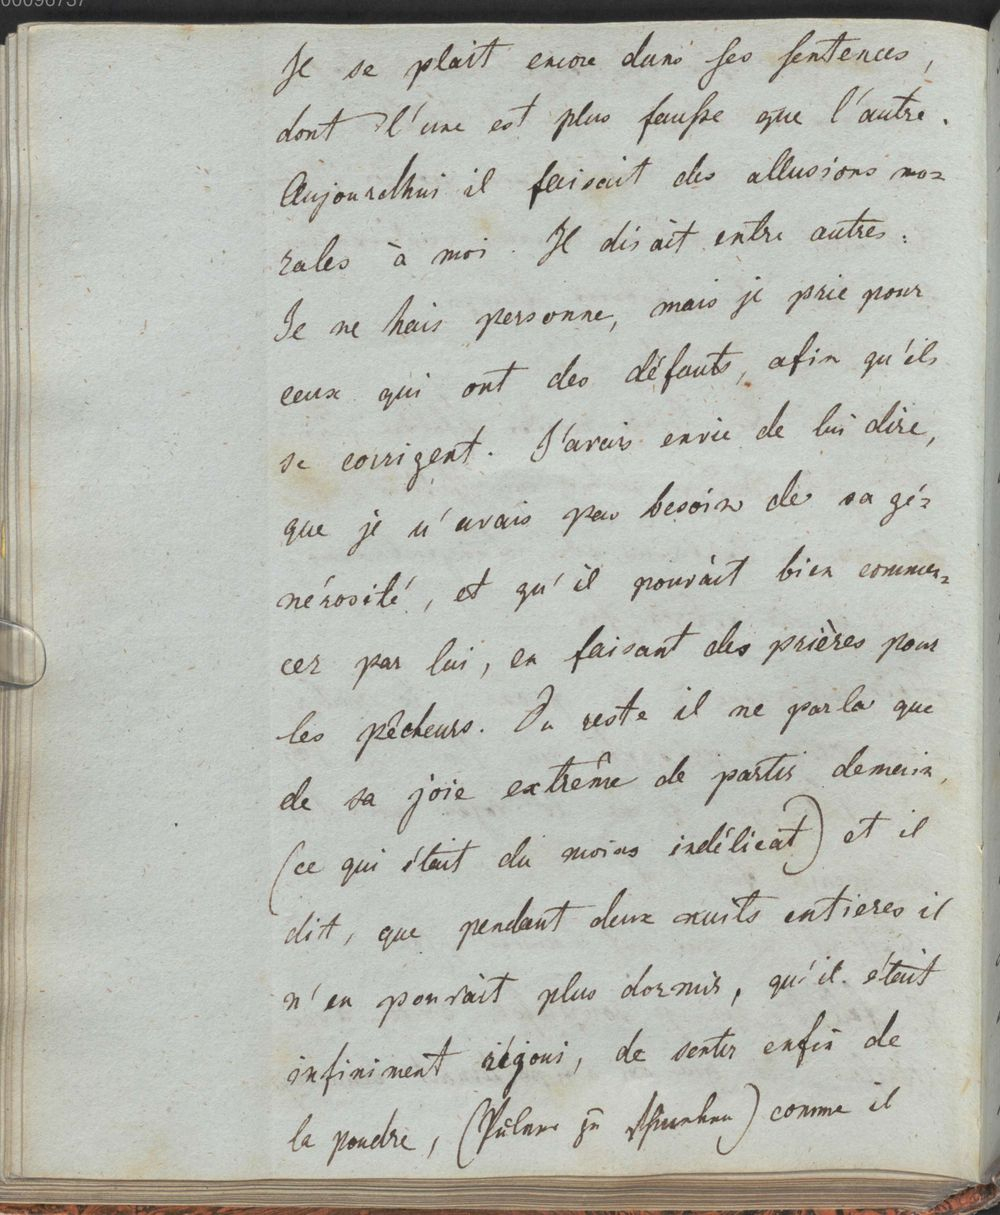 00096737
Il se plait encore dans ses sentences,
dont l'une est plus fausse que l'autre.
Aujourdhui il faisait des allusions mo=
rales à moi. Il disait entre autres:
Je ne hais personne, mais je prie pour
ceux qui ont des défauts, afin qu'ils
se corrigent. J'avais envie de lui dire,
que je n'avais pas besoin de sa gé=
nérosité, et qu'il pouvait bien commen=
cer par lui, en faisant des prières pour
les pêcheurs. Du reste il ne parla que
de sa joie extrême de partir demain,
(ce qui était du moins indélicat) et il
dit, que pendant deux nuits entieres il
n'en pouvait plus dormir, qu'il était
infiniment réjoui, de sentir enfin de
la poudre, (Pulver zu) comme il